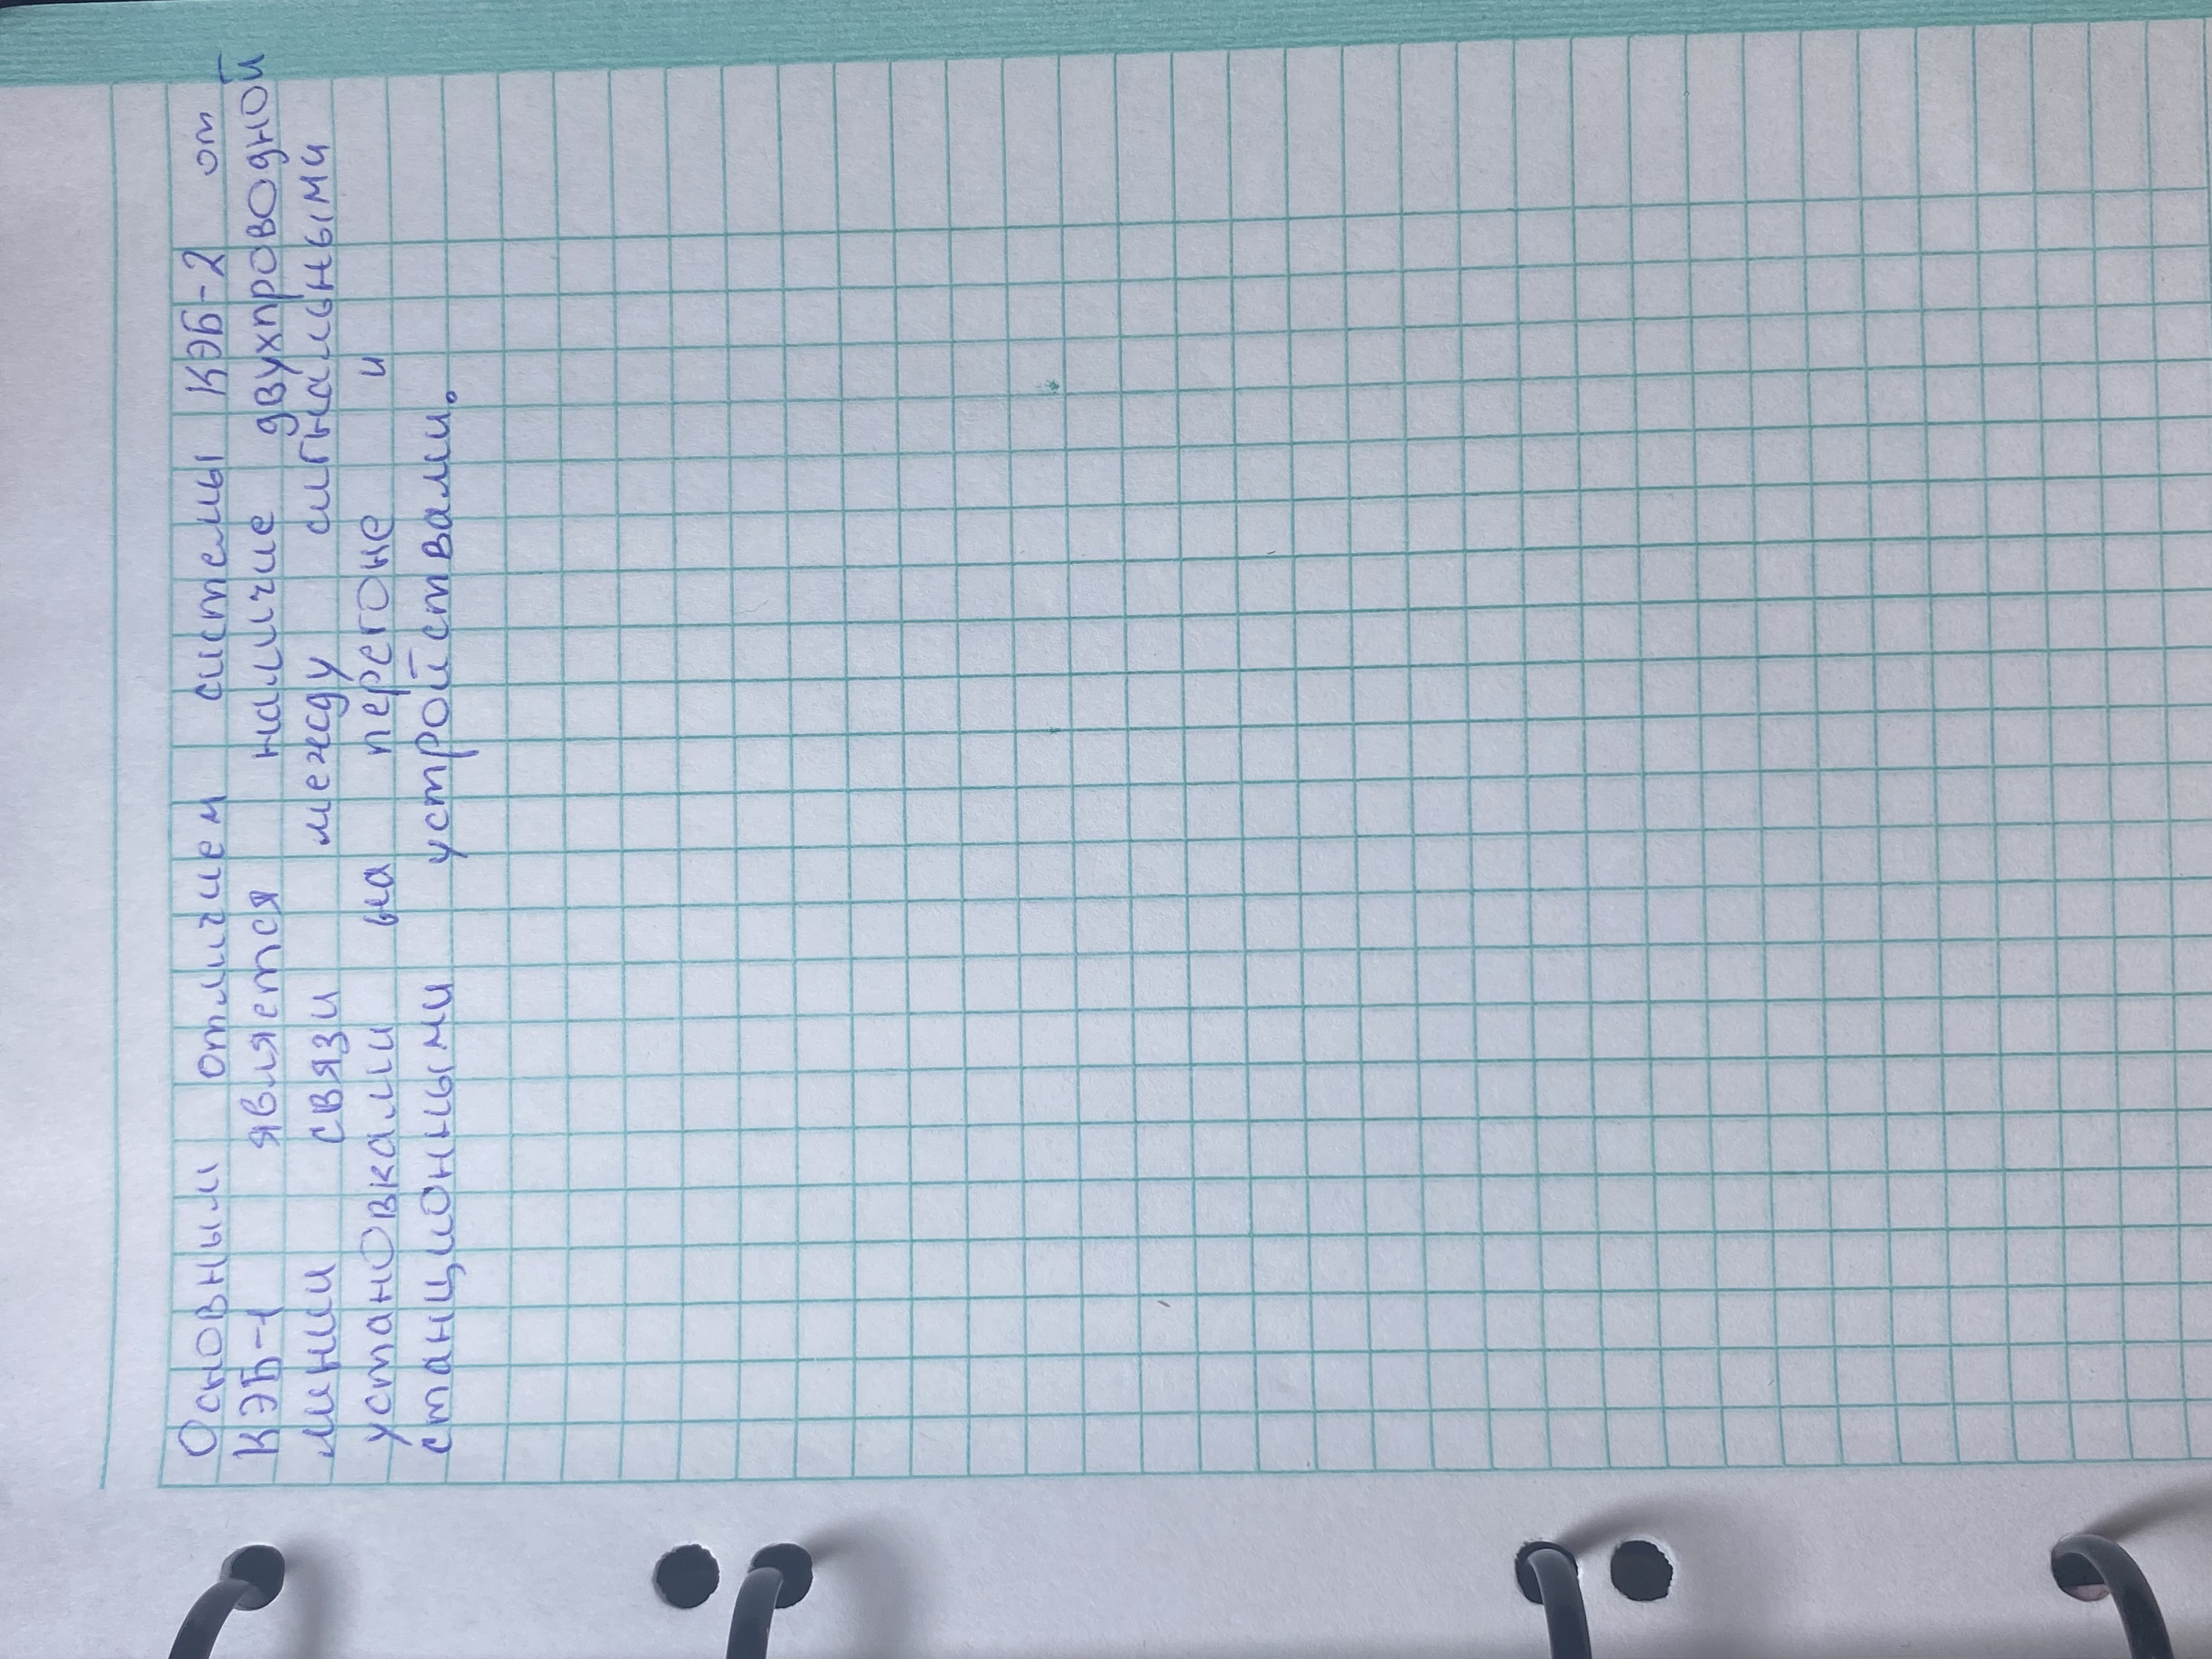 Основным отличием системы КЭБ-2 от
КЭБ-1 является наличие двухпроводной
линии связи между сигнальными
установками на перегоне и
станционными устройствами.